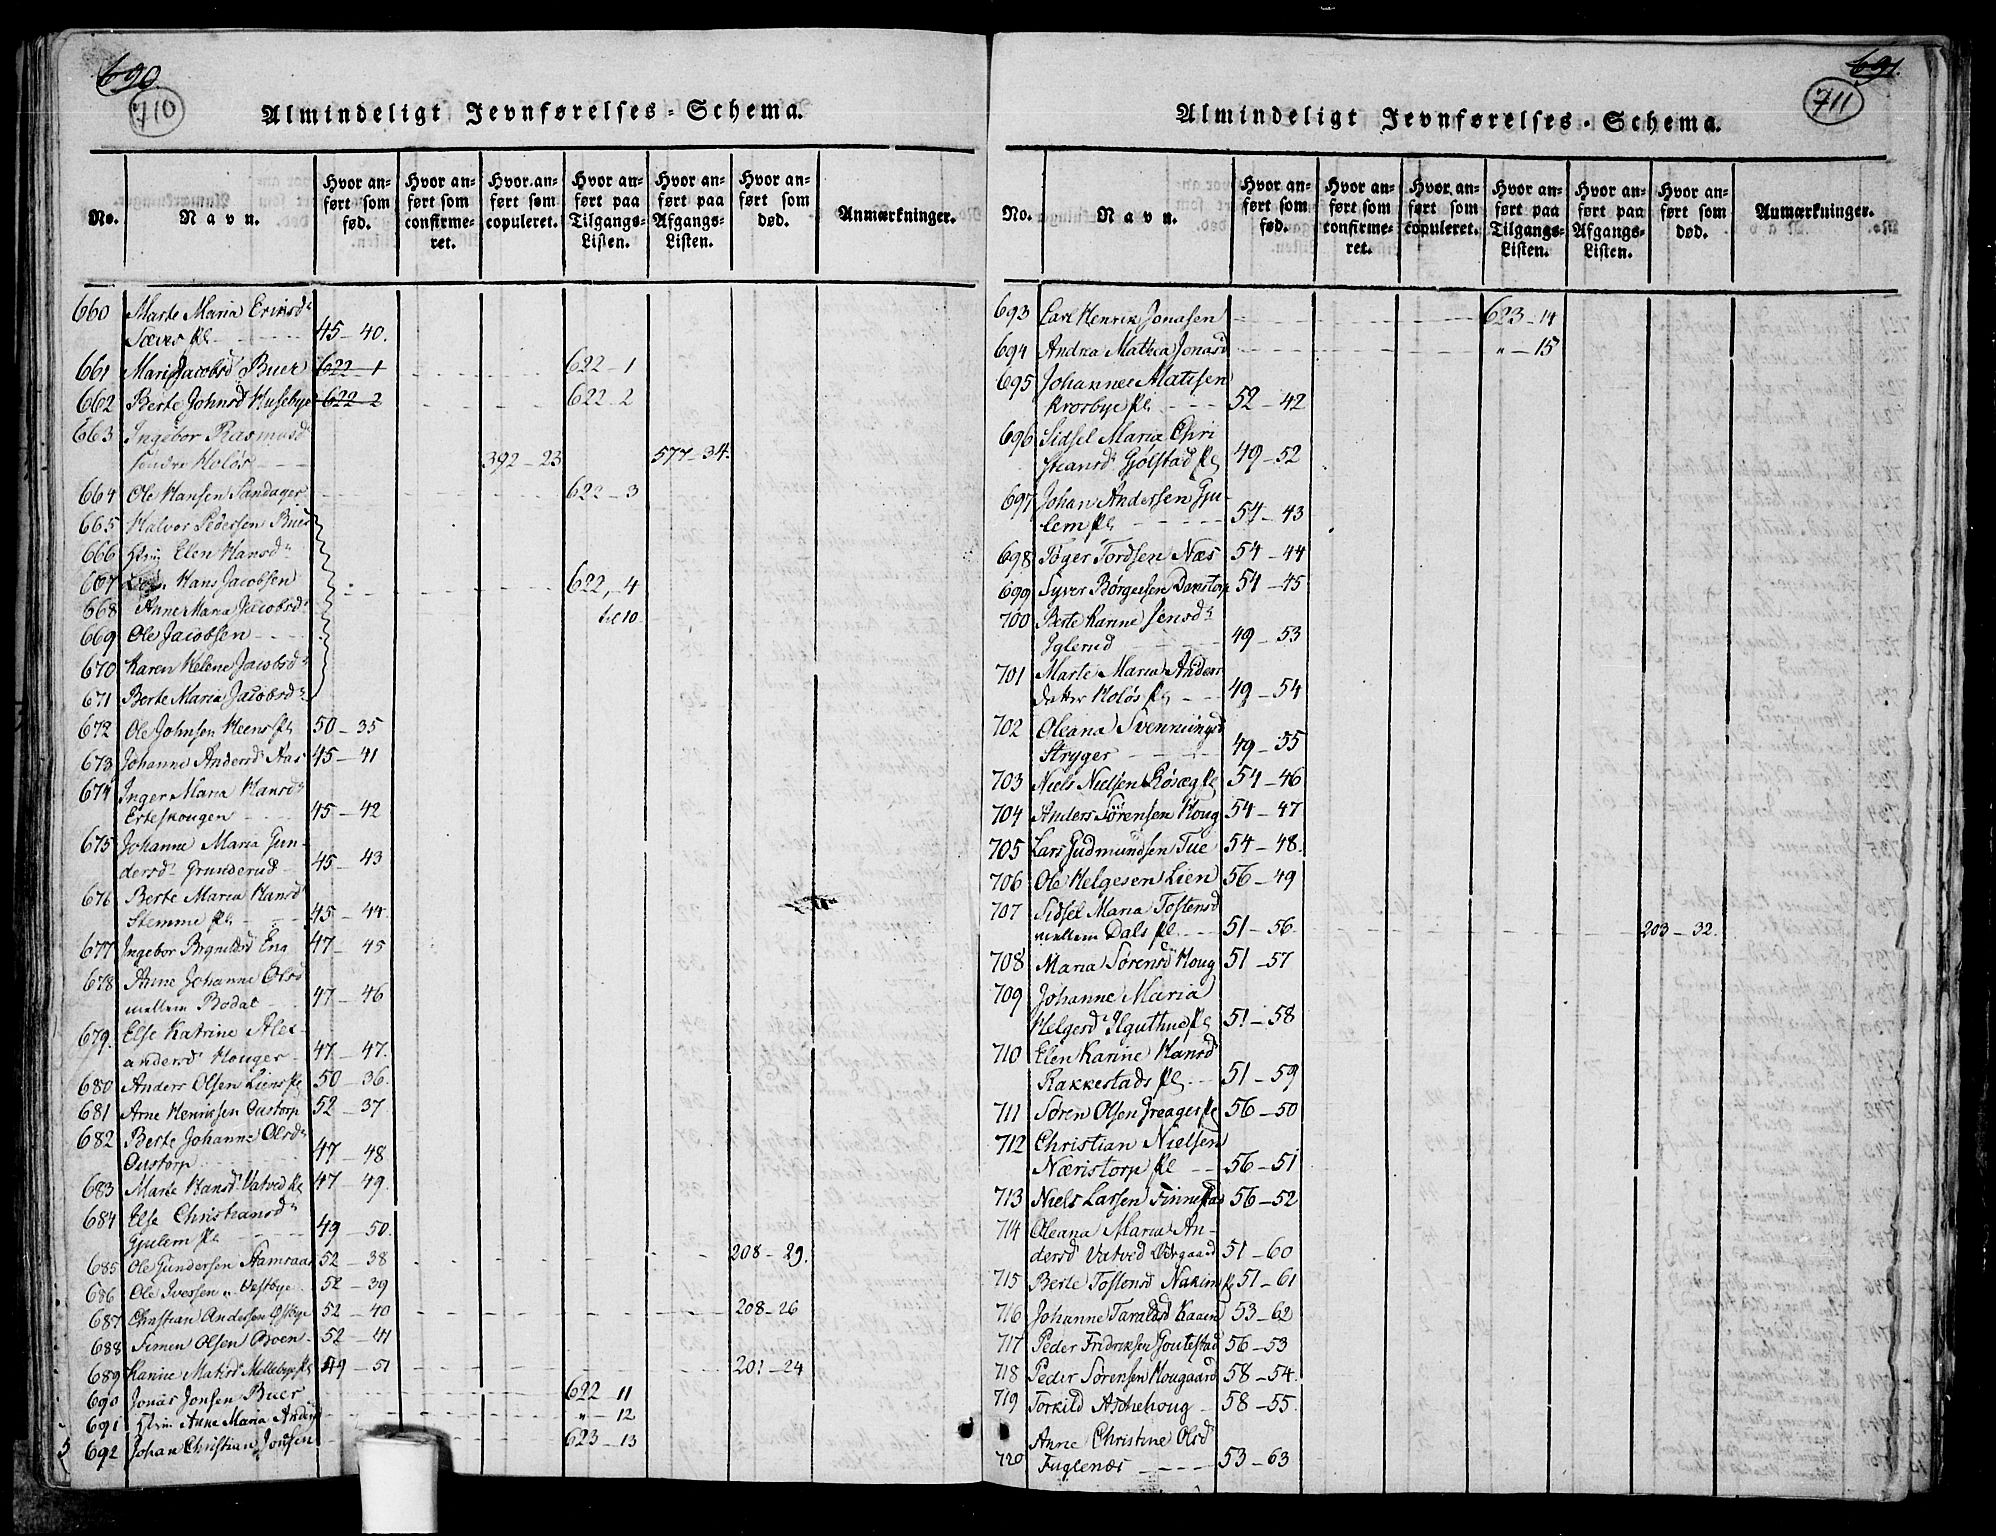 690.
710
Almindeligt Jevnførelses-Schema.
No. Navn. Hvor anført som fød. Hvor anført som confirmeret. Hvor anført som copuleret. Hvor anført paa Tilgangs-Listen. Hvor anført paa Afgangs-Listen. Hvor anført som død. Anmærkninger.
660 Marte Maria Eriksd
pl. 45-40.
661 Mari Jacobsd Buer 622-1 622-1
662 Berte Johnsd Husebye 622-2 622-2
663 Ingebor Rasmusd
søndre Holøs 392-23 577-34.
664 Ole Hansen Sandager 622-3
665 Halvor Pedersen Buer
666 Elen Hansd
667 Hans Jacobsen 622, 4
668 Anne Maria Jacobsd til 10
669 Ole Jacobsen
670 Karen Helene Jacobsd
671 Berte Maria Jacobsd
672 Ole Johnsen Heens pl 50-35
673 Johanne Andersd Aas 45-41
674 Inger Maria Hansd
Erteskougen 45-42
675 Johanne Maria Gun-
dersd Grunderud 45-43
676 Berte Maria Hansd
Stemme pl 45-44
677 Ingebor Eng 47-45
678 Anne Johanne Olsd
mellem Bodal 47-46
679. Else Katrine Alex-
andersd Houger 47-47.
680 Anders Olsen Liens pl 50-36.
681 Arne Henriksen Oustorp 52-37
682 Berte Johanne Olsd
Oustorp 47-48
683 Marte Hansd Vatved pl 47-49.
684 Else Christiansd
Gjulem pl 49-50.
685 Ole Gundersen Hamraas 52-38 208-29.
686 Ole Ivessen Vestbye 52-39
687 Christian Andersen Østbye 52-40 208-26
688 Simen Olsen Broen 52-41
689 Karine Matisd Mellebye pl 49-51 201-24
690 Jonas Jonsen Buer 622-11
691 Anne Maria Andersd " - 12
692 Johan Christian Jonsen 623-13
691.
711
Almindeligt Jevnførelses-Schema.
No. Navn. Hvor anført som fød. Hvor anført som confirmeret. Hvor anført som copuleret. Hvor anført paa Tilgangs-Listen. Hvor anført paa Afgangs-Listen. Hvor anført som død. Anmærkninger.
693 Carl Henrik Jonasen 623-14
694 Andrea Mathea Jonasd " - 15
695 Johannes Matisen
Krosbye pl 52-42
696 Sidsel Maria Chri
stiansd Gjølstad pl 49-52
697 Johan Andersen Gju-
lem pl 54-43
698 Tøger Tordsen Næs 54-44
699 Syver Børgersen Danstorp 54-45
700 Berte Karine Jensd
Iglerud 49-53
701 Marte Maria Anders
datter Holøs pl 49-54
702 Oleana Svenningsd
Stryger 49-55
703 Niels Nielsen Røsæg pl 54-46
704 Anders Sørensen Houg 54-47
705 Lars Gudmundsen Tue 54-48.
706 Ole Helgesen Lien 56-49
707 Sidsel Maria Tostensd
mellem Dals pl. 51-56. 203-32.
708 Maria Sørensd Houg 51-57
709 Johanne Maria
Helgesd pl 51-58
710 Elen Karine Hansd
Rakkestads pl. 51-59
711 Søren Olsen Greager pl 56-50
712 Christian Nielsen
Næristorp pl 56-51
713 Niels Larsen Finnestad 56-52
714 Oleana Maria An-
dersd Vatved Ødegaard 51-60
715 Berte Tostensd Nakim pl 51-61
716 Johanne Taraldsd Kaaen 53-62
717 Peder Fridriksen Goutestad 56-53
718 Peder Sørensen Hougaard 58-54.
719 Torkild Aschehoug 58-55.
720 Anne Christine Olsd
Fuglenæs 53-63